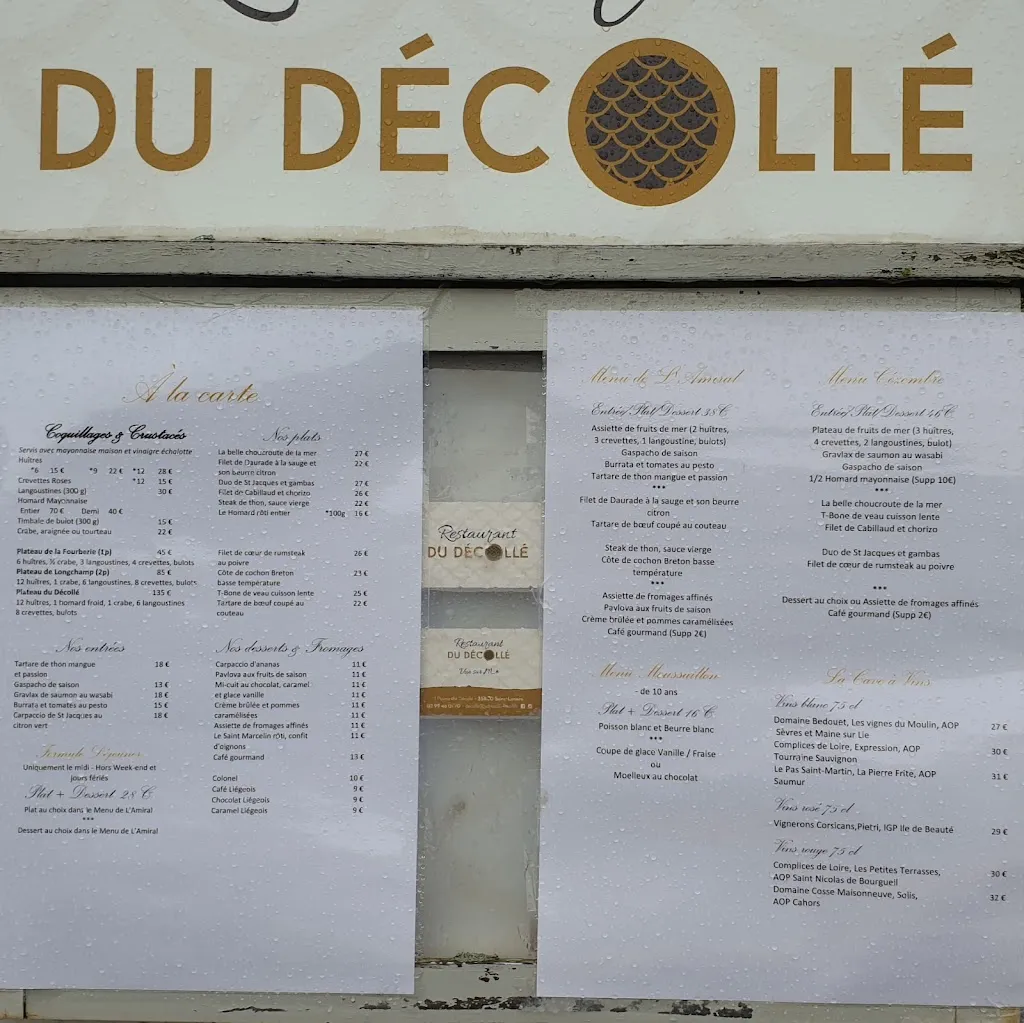 DU DÉCOLLÉ
À la carte
Coquillages & Crustacés
Servis avec mayonnaise maison et vinaigre échalotte
Huîtres
*6 15 € *9 22 € *12 28 €
Crevettes Roses *12 15 €
Langoustines (300 g) 30 €
Homard Mayonnaise
Entier 70 € Demi 40 €
Timbale de bulot (300 g) 15 €
Crabe, araignée ou tourteau 22 €
Plateau de la Fourberie (1p) 45 €
6 huîtres, ½ crabe, 3 langoustines, 4 crevettes, bulots
Plateau de Longchamp (2p) 85 €
12 huîtres, 1 crabe, 6 langoustines, 8 crevettes, bulots
Plateau du Décollé 135 €
12 huîtres, 1 homard froid, 1 crabe, 6 langoustines
8 crevettes, bulots
Nos entrées
Tartare de thon mangue 18 €
et passion
Gaspacho de saison 13 €
Gravlax de saumon au wasabi 18 €
Burrata et tomates au pesto 15 €
Carpaccio de St Jacques au 18 €
citron vert
Formule Déjeuner
Uniquement le midi - Hors Week-end et
jours fériés
Plat + Dessert 28 €
Plat au choix dans le Menu de L'Amiral
***
Dessert au choix dans le Menu de L'Amiral
Nos plats
La belle choucroute de la mer 27 €
Filet de Daurade à la sauge et 22 €
son beurre citron
Duo de St Jacques et gambas 27 €
Filet de Cabillaud et chorizo 26 €
Steak de thon, sauce vierge 22 €
Le Homard rôti entier *100g 16 €
Filet de cœur de rumsteak 26 €
au poivre
Côte de cochon Breton 23 €
basse température
T-Bone de veau cuisson lente 25 €
Tartare de bœuf coupé au 22 €
couteau
Nos desserts & Fromages
Carpaccio d'ananas 11 €
Pavlova aux fruits de saison 11 €
Mi-cuit au chocolat, caramel 11 €
et glace vanille 11 €
Crème brûlée et pommes 11 €
caramélisées 11 €
Assiette de fromages affinés 11 €
Le Saint Marcelin rôti, confit 11 €
d'oignons
Café gourmand 13 €
Colonel 10 €
Café Liégeois 9 €
Chocolat Liégeois 9 €
Caramel Liégeois 9 €
Restaurant
DU DÉCOLLÉ
Restaurant
DU DÉCOLLÉ
Menu de L'Amiral
Entrée/Plat/Dessert 38€
Assiette de fruits de mer (2 huîtres,
3 crevettes, 1 langoustine, bulots)
Gaspacho de saison
Burrata et tomates au pesto
Tartare de thon mangue et passion
***
Filet de Daurade à la sauge et son beurre
citron
Tartare de bœuf coupé au couteau
Steak de thon, sauce vierge
Côte de cochon Breton basse
température
***
Assiette de fromages affinés
Pavlova aux fruits de saison
Crème brûlée et pommes caramélisées
Café gourmand (Supp 2€)
Menu Moussaillon
- de 10 ans
Plat + Dessert 16 €
Poisson blanc et Beurre blanc
***
Coupe de glace Vanille / Fraise
ou
Moelleux au chocolat
Menu Cézembre
Entrée/Plat/Dessert 46€
Plateau de fruits de mer (3 huîtres,
4 crevettes, 2 langoustines, bulot)
Gravlax de saumon au wasabi
Gaspacho de saison
1/2 Homard mayonnaise (Supp 10€)
***
La belle choucroute de la mer
T-Bone de veau cuisson lente
Filet de Cabillaud et chorizo
Duo de St Jacques et gambas
Filet de cœur de rumsteak au poivre
***
Dessert au choix ou Assiette de fromages affinés
Café gourmand (Supp 2€)
La Cave à Vins
Vins blanc 75 cl
Domaine Bedouët, Les vignes du Moulin, AOP 27 €
Sèvres et Maine sur Lie
Complices de Loire, Expression, AOP 30 €
Tourraine Sauvignon
Le Pas Saint-Martin, La Pierre Frite, AOP 31 €
Saumur
Vins rosé 75 cl
Vignerons Corsicans,Pietri, IGP Ile de Beauté 29 €
Vins rouge 75 cl
Complices de Loire, Les Petites Terrasses, 30 €
AOP Saint Nicolas de Bourgueil
Domaine Cosse Maisonneuve, Solis, 32 €
AOP Cahors